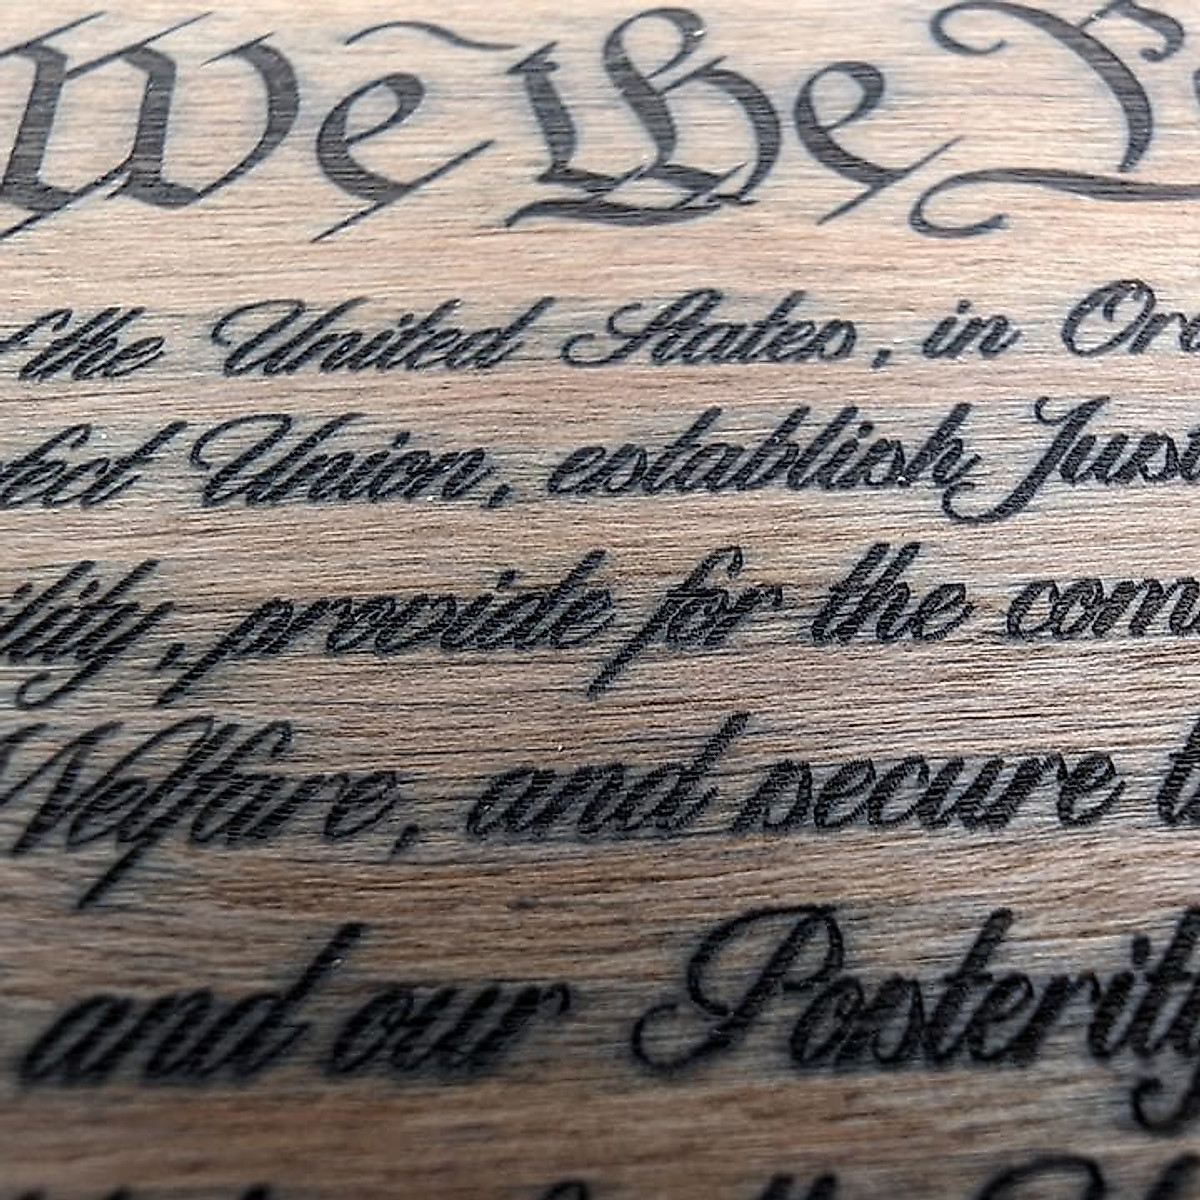 We the P
the United States, in Ord
fect Union, establish Just
ility, provide for the com
Welfare, and secure t
and our Posterity